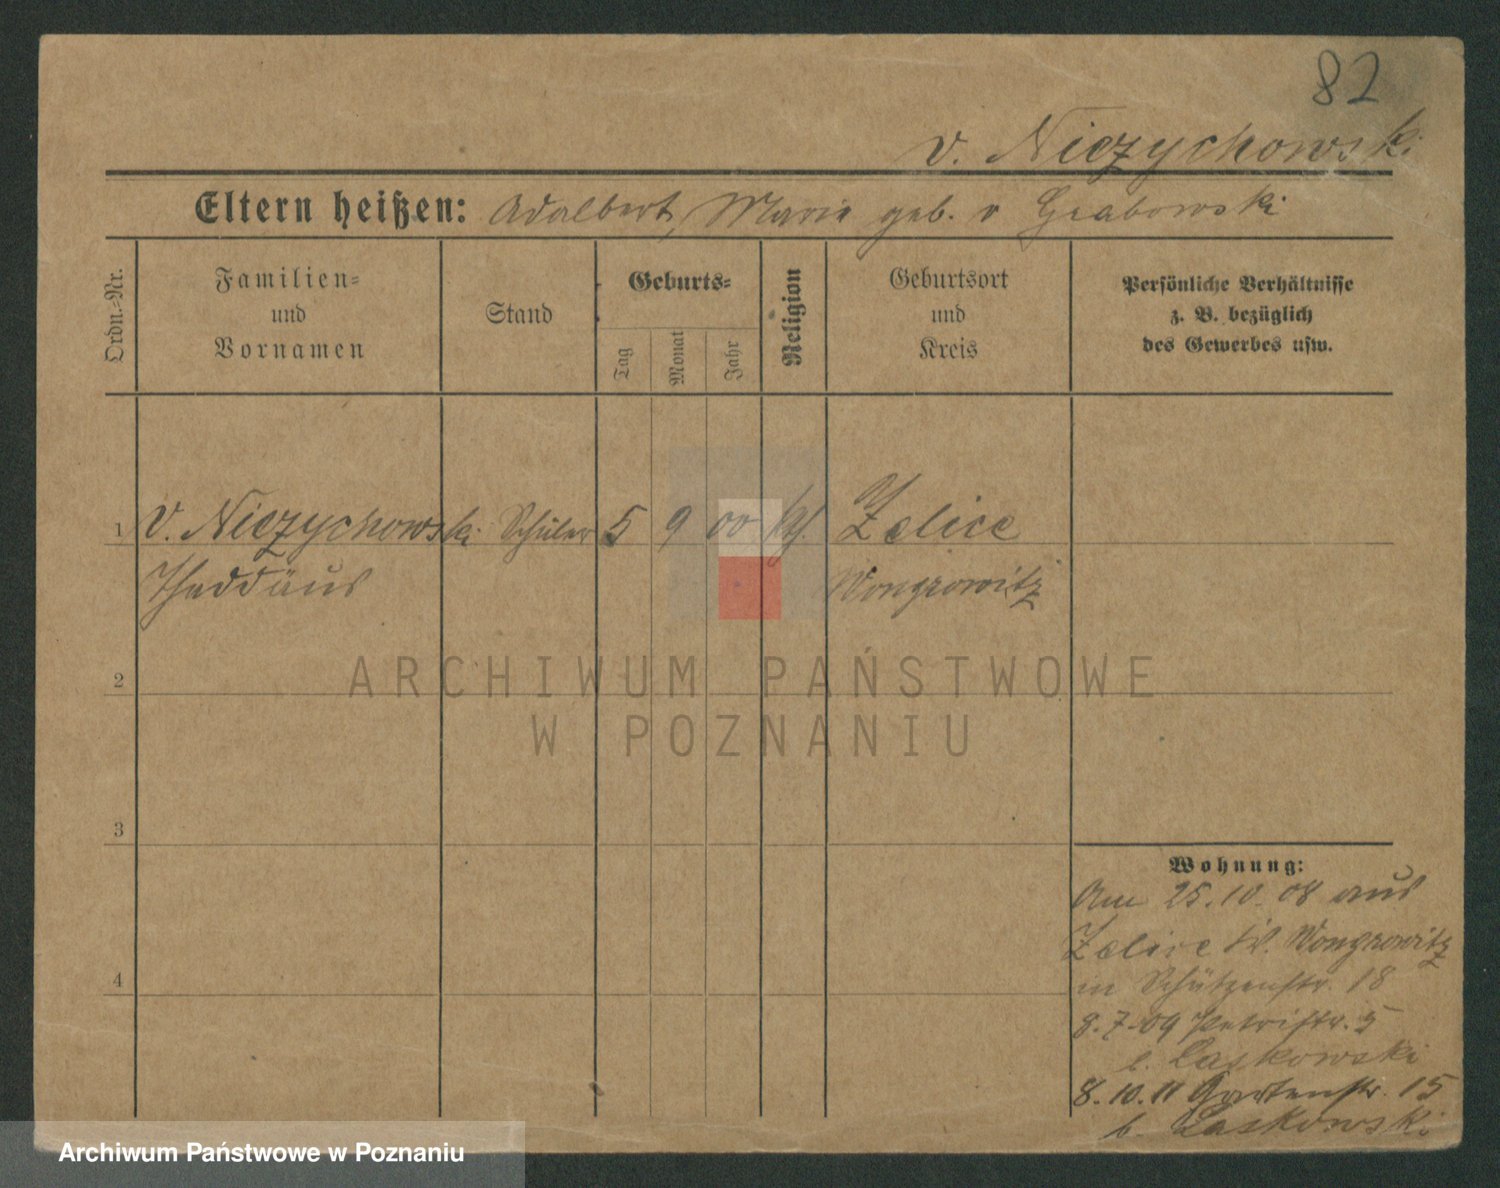 82
v. Niezychowski
Eltern heißen: Adalbert, Marie geb. v Grabowski
Ordn.-Nr.
Familien- und Vornamen
Stand
Geburts-
Tag
Monat
Jahr
Religion
Geburtsort und Kreis
Persönliche Verhältnisse
z. B. bezüglich
des Gewerbes usw.
1 v. Niezychowski Schüler 5 9 00 kth. Zelice
Thaddäus Wongrowitz
2
ARCHIWUM PAŃSTWOWE
W POZNANIU
3
Wohnung:
Am 25.10.08 aus
Zelice Kr. Wongrowitz
4
in Schützenstr. 18
8.7.09 Petristr. 5
b. Laskowski
8.10.11 Gartenstr. 15
b. Laskowski
Archiwum Państwowe w Poznaniu